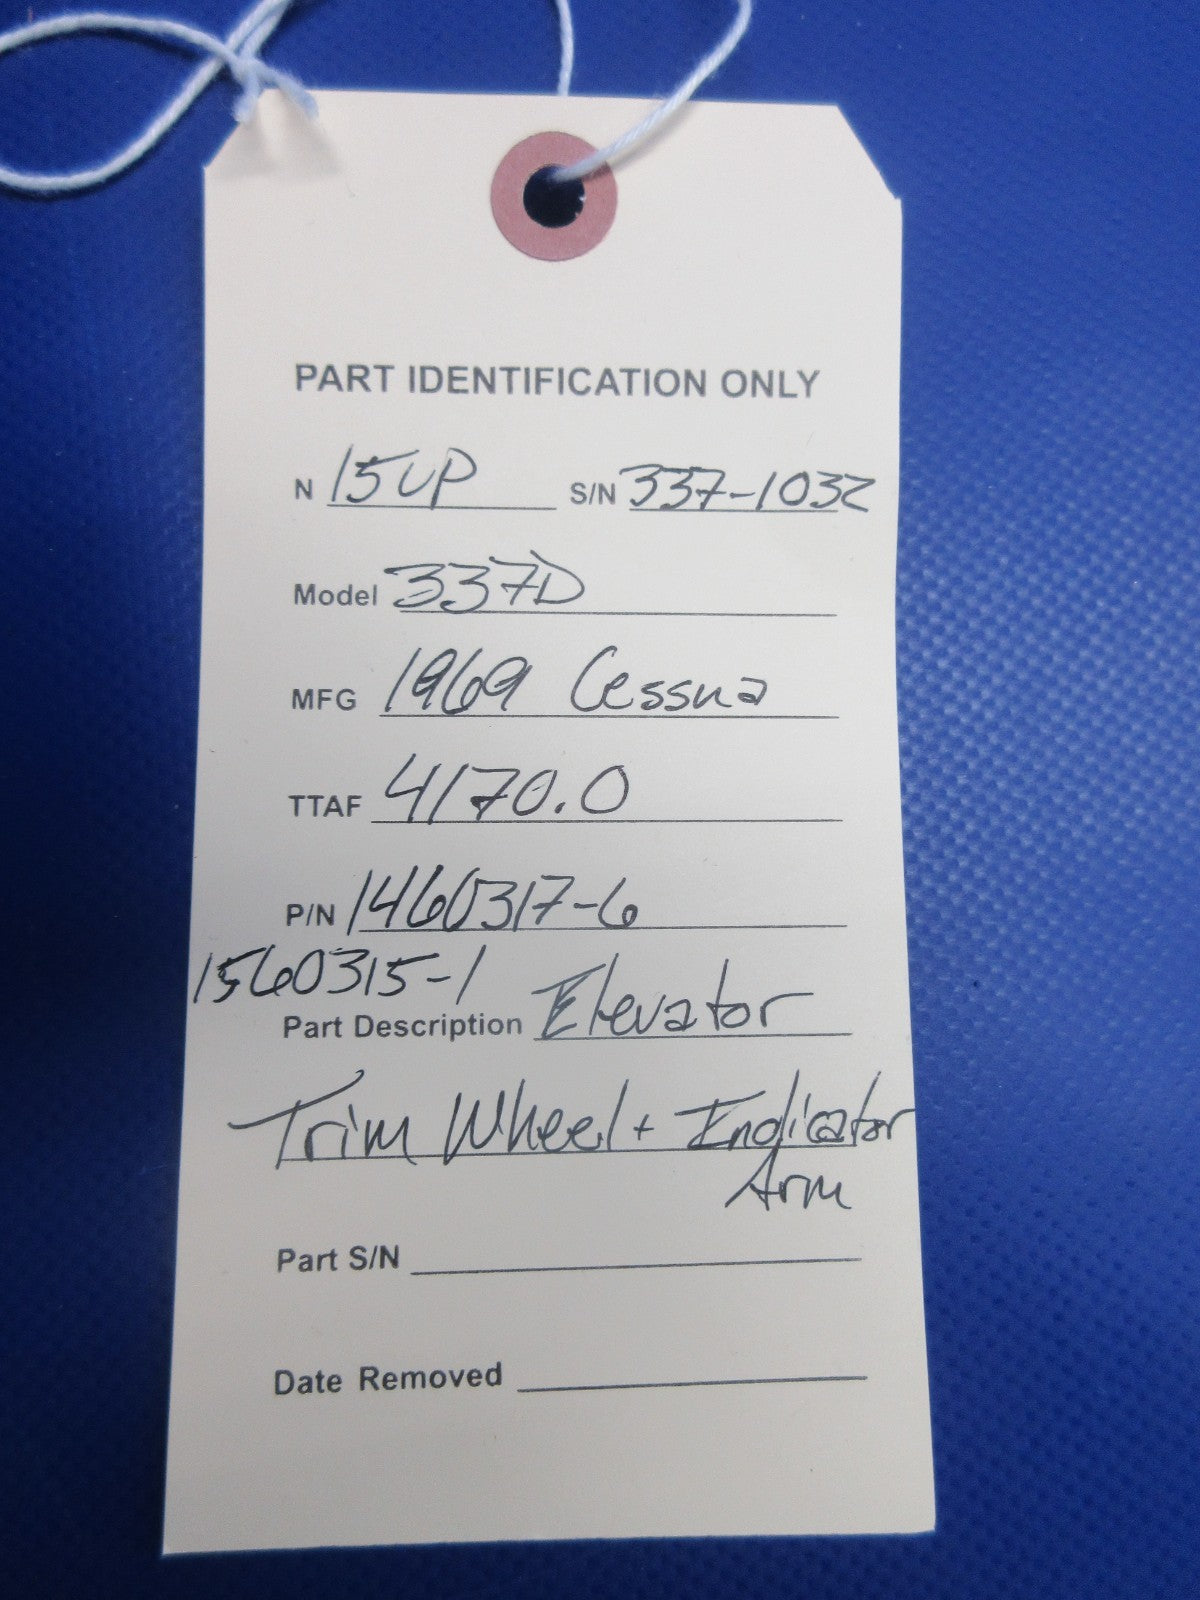 PART IDENTIFICATION ONLY
N 15UP S/N 337-1032
Model 337D
MFG 1969 Cessna
TTAF 4170.0
P/N 1460317-6
1560315-1
Part Description Elevator
Trim Wheel + Indicator
Arm
Part S/N
Date Removed